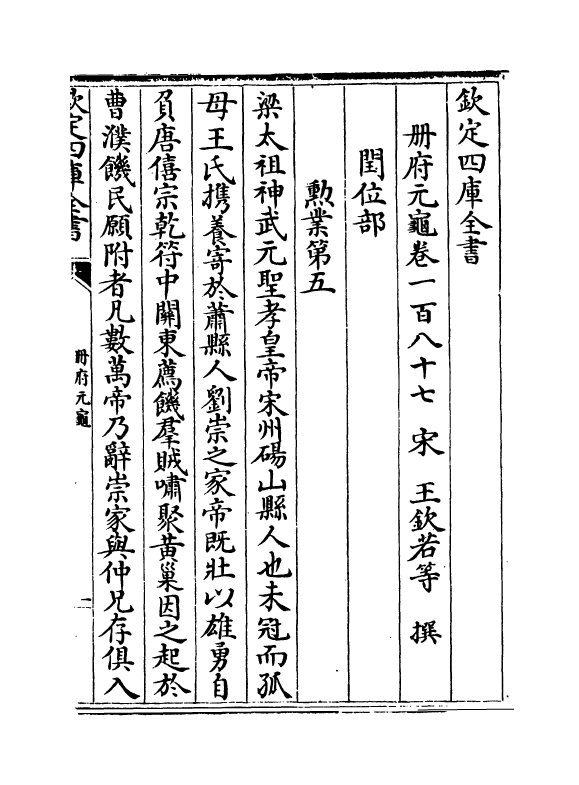 欽定四庫全書
冊府元龜卷一百八十七　宋　王欽若等　撰
閏位部
勲業第五
梁太祖神武元聖孝皇帝宋州碭山縣人也未冠而孤
母王氏攜養寄於蕭縣人劉崇之家帝既壯以雄勇自
負唐僖宗乾符中關東薦饑羣賊嘯聚黄巢因之起於
曹濮饑民願附者凡數萬帝乃辭崇家與仲兄存俱入
欽定四庫全書
冊府元龜
一